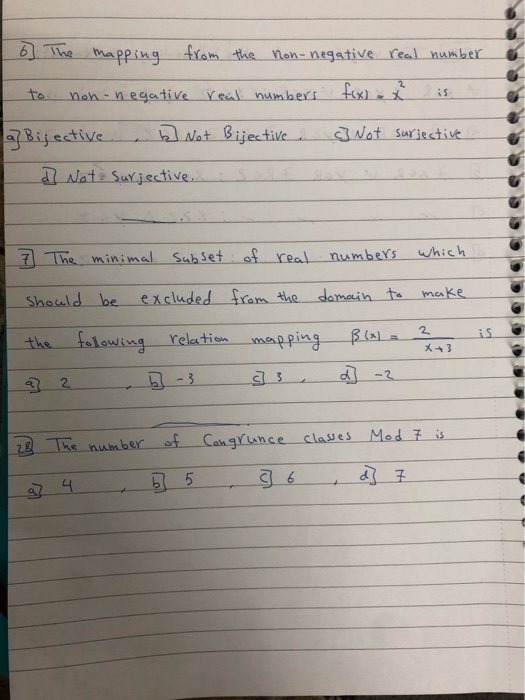 6] The mapping from the non-negative real number
to non-negative real numbers f(x) = x² is
a] Bijective , b] Not Bijective , c] Not surjective
d] Not surjective.
7] The minimal subset of real numbers which
should be excluded from the domain to make
the following relation mapping β(x) = 2/(x+3) is
a] 2 , b] -3 c] 3 , d] -2
28] The number of Congrunce classes Mod 7 is
a] 4 , b] 5 , c] 6 , d] 7